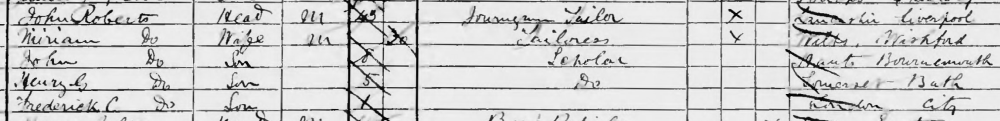 John Roberts Head M 45 Journeyman Tailor X Lancashire Liverpool
Miriam Do Wife M 30 Tailoress X Wilts, Wishford
John Do Son 8 Scholar Hants Bournemouth
Henry G Do Son 5 Do Somerset Bath
Frederick C. Do Son 1 London City
Head M